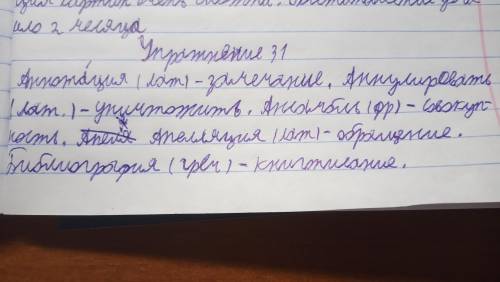 ило 2 месяца
Упражнение 31
Аннотáция (лат) - замечание. Аннулировать
(лат.) - уничтожить. Ансамбль (фр) - совокуп-
ность. Апелляция (лат) - обращение.
Библиография (греч) - книгописание.